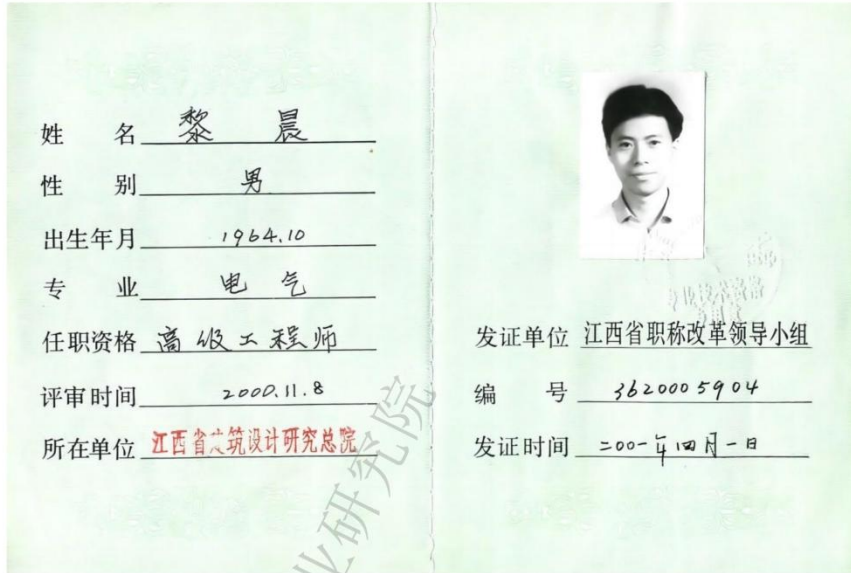 姓 名 黎 晨
性 别 男
出生年月 1964.10
专 业 电 气
任职资格 高级工程师
评审时间 2000.11.8
所在单位 江西省建筑设计研究总院
发证单位 江西省职称改革领导小组
编 号 3620005904
发证时间 二00一年四月一日
业研究院